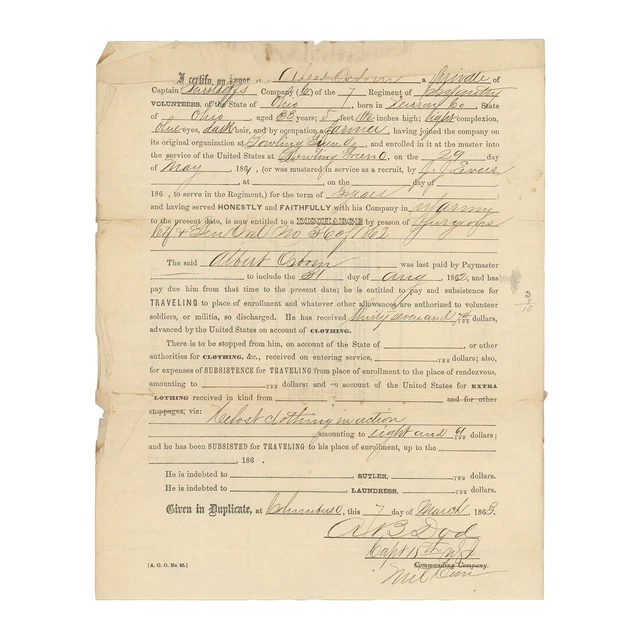 I certify, on honor Albert Osborn a Private of
Captain Company ( ) of the 7 Regiment of
VOLUNTEERS, of the State of Ohio, born in Co, State
of Ohio, aged years; 5 feet inches high; light complexion,
blue eyes, dark hair, and by occupation a farmer, having joined the company on
its original organization at Bowling Green O, and enrolled in it at the muster into
the service of the United States at Bowling Green O, on the 29 day
of May, 186 , (or was mustered in service as a recruit, by J. J. Evers
, at on the day of ,
186 , to serve in the Regiment,) for the term of
and having served HONESTLY and FAITHFULLY with his Company in
to the present date, is now entitled to a DISCHARGE by reason of
No 36 of 1862
The said Albert Osborn was last paid by Paymaster
to include the 31 day of Aug, 1862, and has
pay due him from that time to the present date; he is entitled to pay and subsistence for
TRAVELING to place of enrollment and whatever other allowances are authorized to volunteer
soldiers, or militia, so discharged. He has received thirty seven and 17/100 dollars,
advanced by the United States on account of CLOTHING.
There is to be stopped from him, on account of the State of , or other
authorities for CLOTHING, &c., received on entering service, /100 dollars; also,
for expenses of SUBSISTENCE for TRAVELING from place of enrollment to place of rendezvous,
amounting to /100 dollars: and on account of the United States for EXTRA
CLOTHING received in kind from and for other
stoppages, viz: He lost clothing in action
amounting to eight and /100 dollars;
and he has been SUBSISTED for TRAVELING to his place of enrollment, up to the
, 186 .
He is indebted to , SUTLER, /100 dollars.
He is indebted to , LAUNDRESS, /100 dollars.
Given in Duplicate, at Columbus O, this 7 day of March, 1863.
A B Dod
Capt 15th U S I
Commanding Company.
[A. G. O. No. 95.]